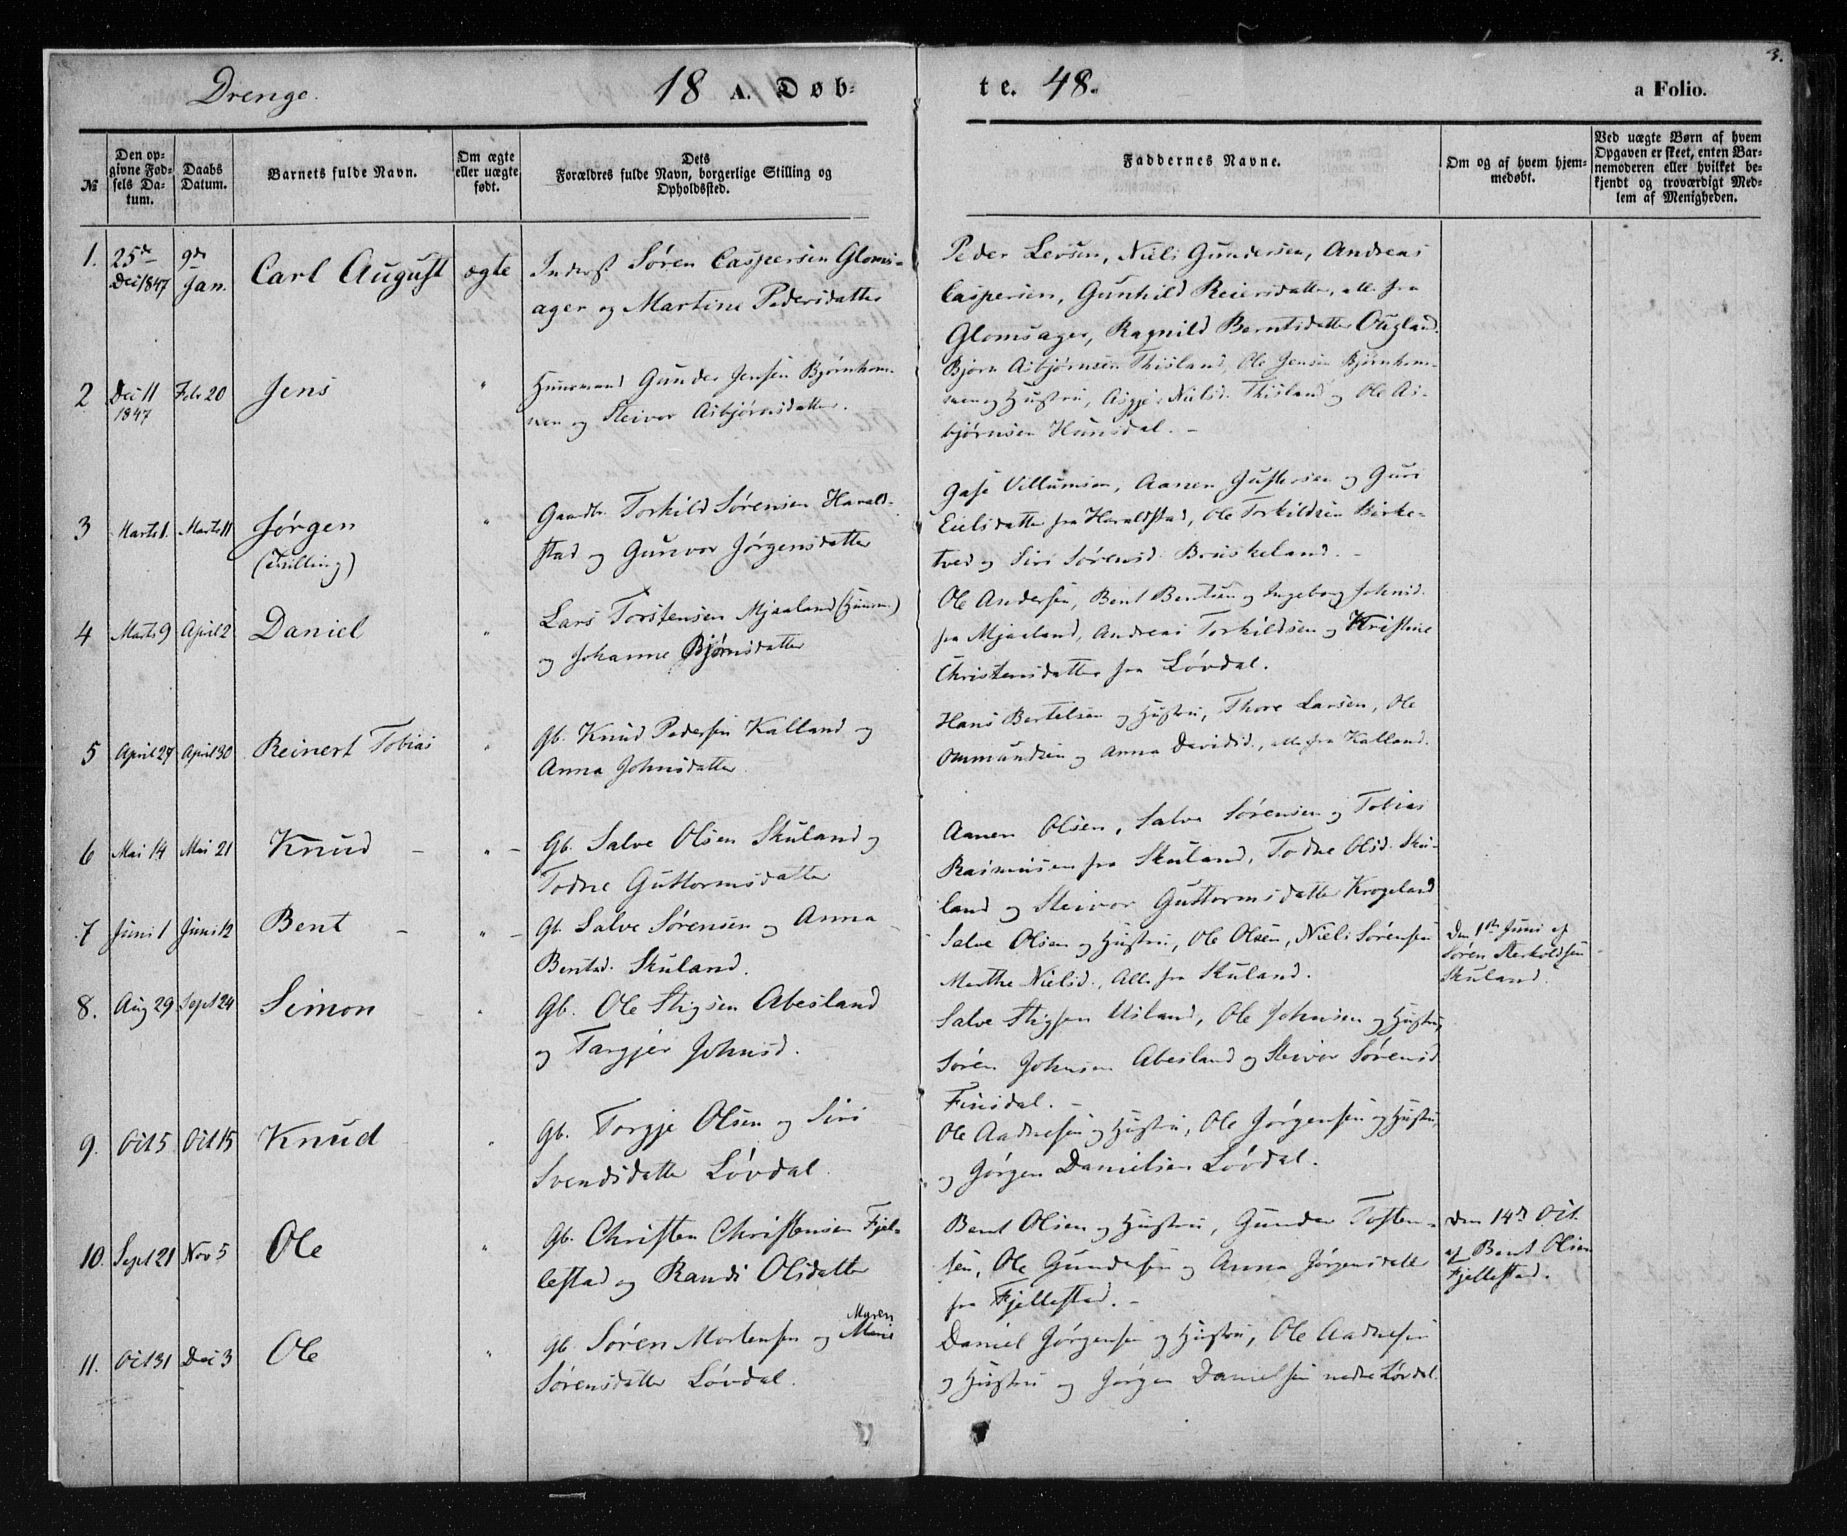 3.
Drenge. 18 A. Døb-
te. 48. a Folio.
№
Den op-
givne Fød-
sels Da-
tum.
Daabs
Datum.
Barnets fulde Navn.
Om ægte
eller uægte
født.
Dets
Forældres fulde Navn, borgerlige Stilling og
Opholdssted.
Faddernes Navne.
Om og af hvem hjem-
medøbt.
Ved uægte Børn af hvem
Opgaven er skeet, enten Bar-
nemoderen eller hvilket be-
kjendt og troværdigt Med-
lem af Menigheden.
1. 25de Dec 1847 9de Jan. Carl August ægte
Inderst Søren Caspersen Gloms-
ager og Martine Pedersdatter
Peder Levsen, Niels Gundersen, Andreas
Caspersen, Gunhild Reiersdatter, alle fra
Glomsager, Ragnild Berntsdatter Ougland.
2 Dec 11 1847 Febr 20 Jens "
Huusmand Gunder Jensen Bjørnhom-
men og Steivor Asbjørnsdatter.
Bjørn Asbjørnsen Thisland, Ole Jensen Bjørnhom-
men og Hustru, Nielsd. Thisland og Ole As-
bjørnsen Hunsdal. -
3 Marts 1. Marts 11 Jørgen "
(Tvilling)
Gaardbr. Torkild Sørensen Harald-
stad og Gunvor Jørgensdatter
Villumsen, Aanen og Guri
Eielsdatter fra Haraldstad, Ole Torkildsen Birke-
tved og Siri Sørensd. Bruskeland. -
4 Marts 9 April 2 Daniel "
Lars Torstensen Mjaaland (Huusm.)
og Johanne Bjørnsdatter
Ole Andersen, Bent Bentsen og Ingeborg Johnsd.
fra Mjaaland, Andreas Torkildsen og Kristine
Christensdatter fra Løvdal.
5 April 27 April 30 Reinert Tobias "
Gb. Knud Pedersen Kalland og
Anna Johnsdatter
Hans Bertelsen og Hustru, Thore Larsen, Ole
Ommundsen og Anna Davidsd., alle fra Kalland.
6 Mai 14 Mai 21 Knud - " -
Gb. Salve Olsen Skuland og
Todne Guttormsdatter
Aanen Olsen, Salve Sørensen og Tobias
Rasmussen fra Skuland, Todne Olsd. Sku-
land og Steivor Guttormsdatter Krogeland
7 Juni 1 Juni 12 Bent - " -
Gb. Salve Sørensen og Anna
Bentsd. Skuland.
Salve Olsen og Hustru, Ole Olsen, Niels Sørensen
Marthe Nielsd., Alle fra Skuland.
Den 1ste Juni af
Søren Sterkoldsen
Skuland.
8. Aug 29 Sept 24 Simon - "
Gb. Ole Stigsen Abesland
og Targjer Johnsd.
Salve Stigsen Usland, Ole Johnsen og Hustru,
Søren Johnsen Abesland og Steivor Sørensd
Finsdal. -
9. Oct 5 Oct 15 Knud "
Gb. Torgje Olsen og Siri
Svendsdatter Løvdal.
Ole Aadnesen og Hustru, Ole Jørgensen og Hustru,
og Jørgen Danielsen Løvdal.
10. Sept 21 Nov 5 Ole "
Gb. Christen Christensen Fjel-
lestad og Randi Olsdatter
Bent Olsen og Hustru, Gunder Tosten-
sen, Ole Gundersen og Anna Jørgensdatter
fra Fjellestad. -
Den 14de Oct.
af Bent Olsen
Fjellestad.
11. Oct 31 Dec 3 Ole "
Gb. Søren Mortensen og Maren Marie
Sørensdatter Løvdal.
Daniel Jørgensen og Hustru, Ole Aadnesen
og Hustru og Jørgen Danielsen nedre Løvdal